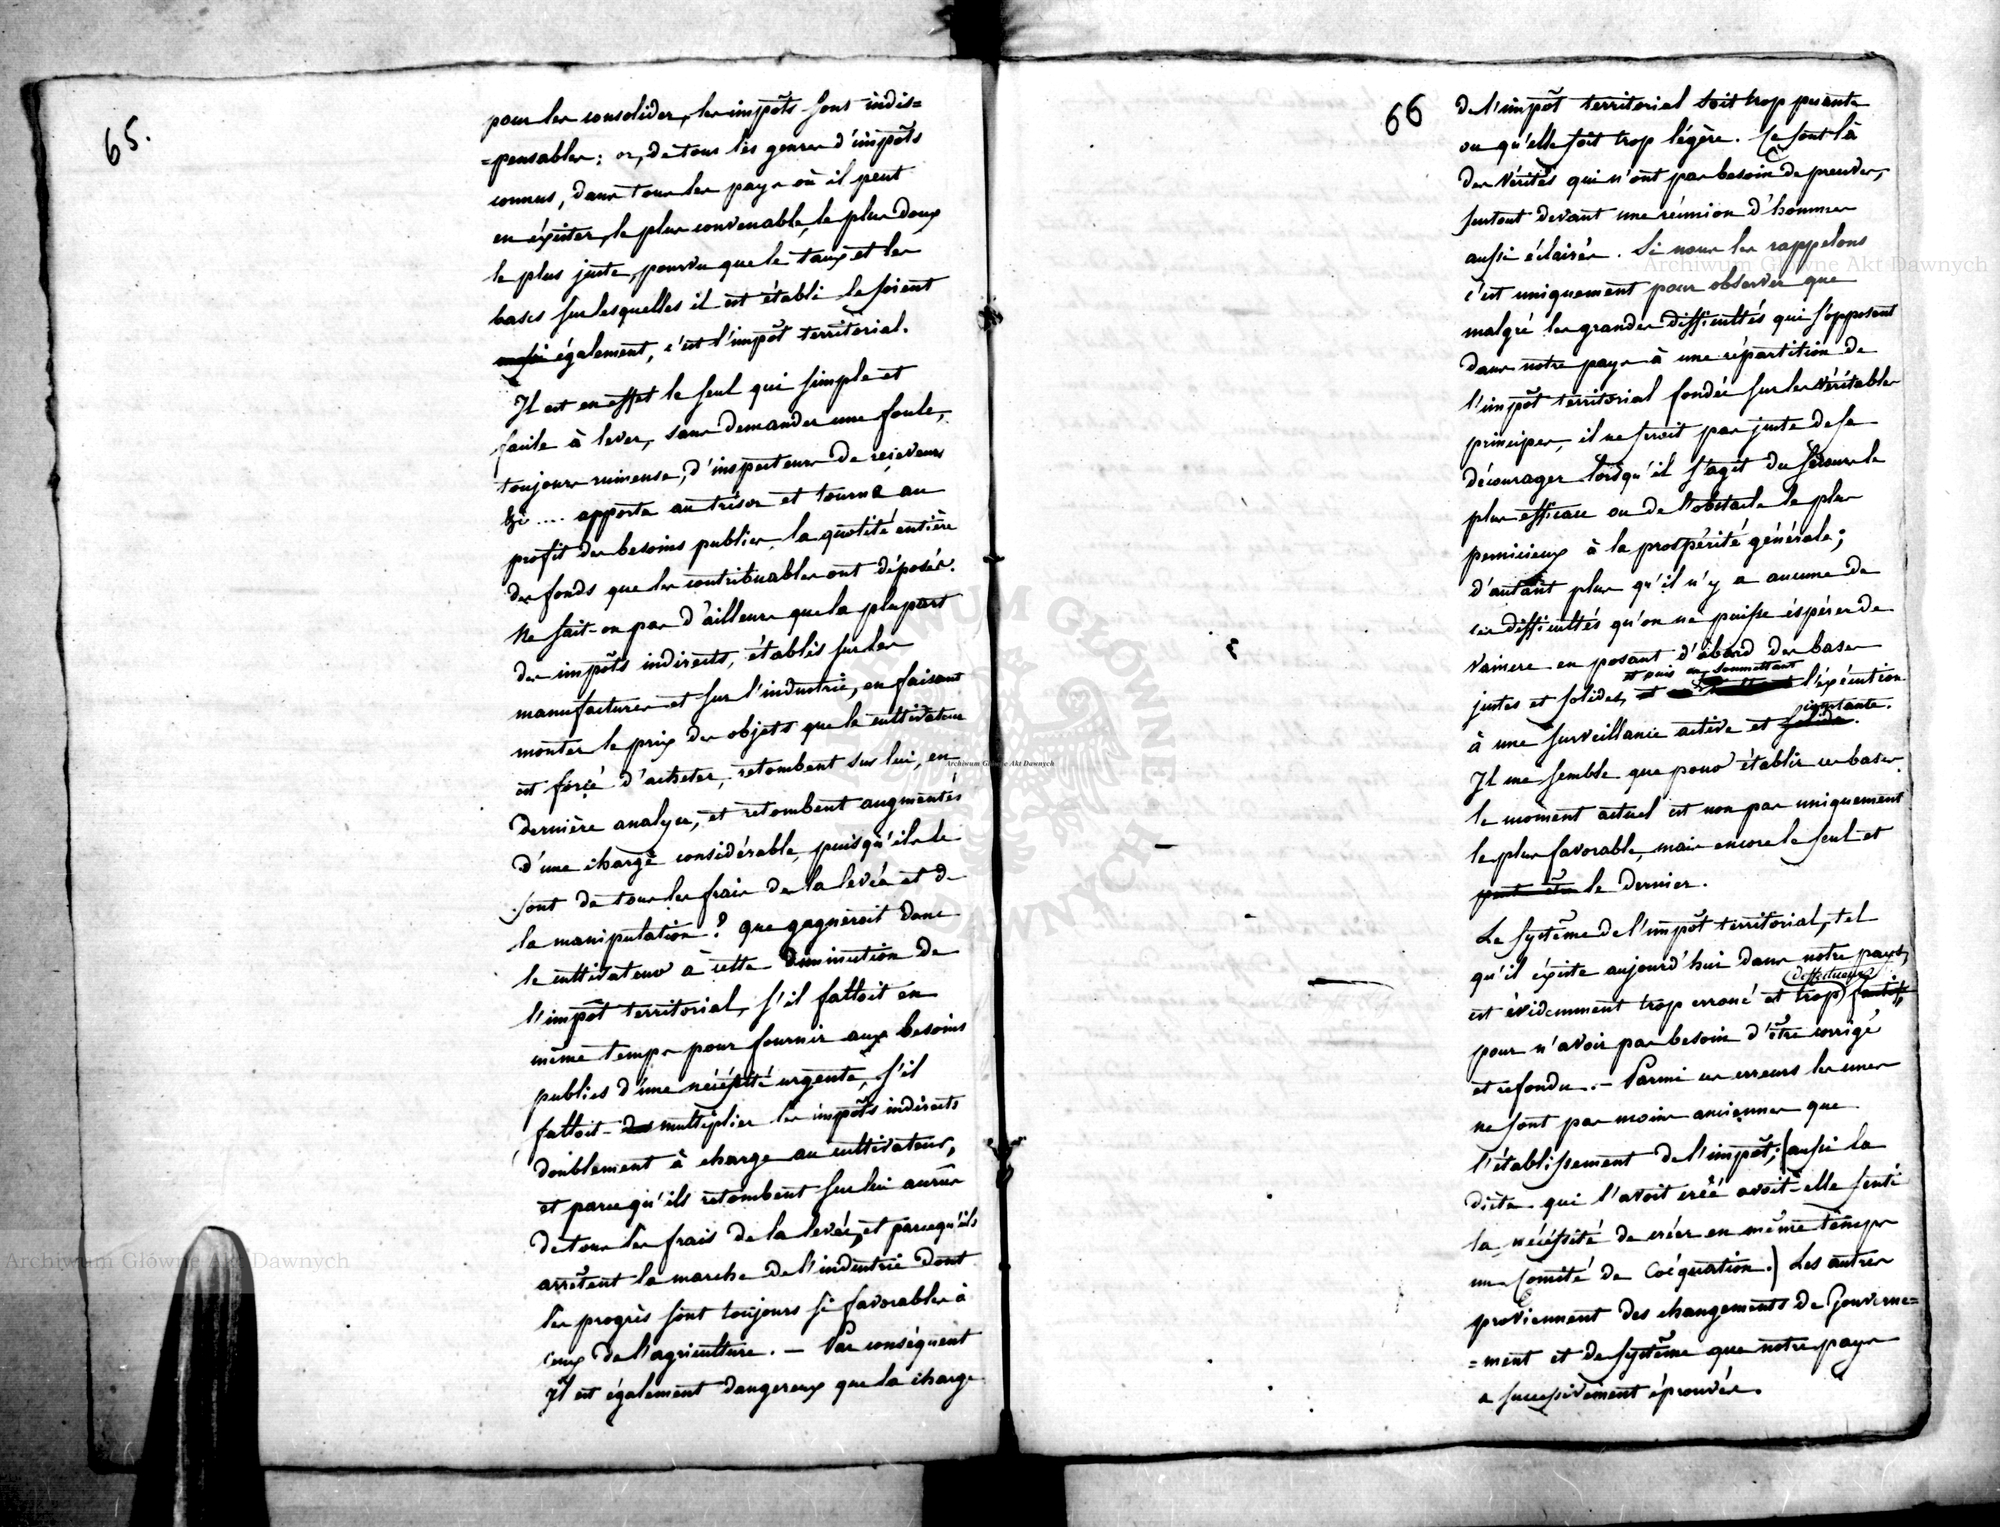 65.
pour les consolider, les impôts sont indis=
=pensables: or, de tous les genres d'impôts
connus, dans tous les pays où il peut
en éxister, le plus convenable, le plus doux
le plus juste, pourvu que le taux et les
bases sur lesquelles il est établi le soient
également, c'est l'impôt territorial.
Il est en effet le seul qui simple et
facile à lever, sans demander une foule,
toujours ruineuse, d'inspecteurs de receveurs
&c .... apporte au trésor et tourne au
profit des besoins publics la quotité entière
des fonds que les contribuables ont déposés.
Ne sait-on pas d'ailleurs que la plupart
des impôts indirects, établis sur les
manufactures et sur l'industrie, en faisant
monter le prix des objets que le cultivateur
est forcé d'acheter, retombent sur lui, en
dernière analyse, et retombent augmentés
d'une charge considérable, puisqu'ils le
sont de tous les frais de la levée et de
la manipulation? que gagneroit donc
le cultivateur à cette diminution de
l'impôt territorial, s'il falloit en
même temps pour fournir aux besoins
publics d'une nécéssité urgente, s'il
falloit multiplier les impôts indirects
doublement à charge au cultivateur,
et parcequ'ils retombent sur lui accrus
de tous les frais de la levée, et parcequ'ils
arrêtent la marche de l'industrie dont
les progrès sont toujours si favorables à
ceux de l'agriculture. — Par conséquent
Il est également dangereux que la charge
66
de l'impôt territorial soit trop pesante
ou qu'elle soit trop légère. Ce sont là
des vérités qui n'ont pas besoin de preuves,
surtout devant une réunion d'hommes
aussi éclairés. Si nous les rappelons
c'est uniquement pour observer que
malgré les grandes difficultés qui s'opposent
dans notre pays à une répartition de
l'impôt territorial fondée sur les véritables
principes, il ne seroit pas juste de se
décourager lorsqu'il s'agit du secours le
plus efficace ou de l'obstacle le plus
pernicieux à la prospérité générale;
d'autant plus qu'il n'y a aucune de
ces difficultés qu'on ne puisse éspérer de
vaincre en posant d'abord des bases
et puis en soumettant
justes et solides, l'éxécution
constante.
à une surveillance active et solide.
Il me semble que pour établir ces bases
le moment actuel est non pas uniquement
le plus favorable, mais encore le seul et
peut être le dernier.
Le système de l'impôt territorial, tel
qu'il éxiste aujourd'hui dans notre pays,
deffectueux
est évidemment trop erroné et trop fautif,
pour n'avoir pas besoin d'être corrigé
et refondu. — Parmi ces erreurs les unes
ne sont pas moins anciennes que
l'établissement de l'impôt; (aussi la
diète qui l'avoit créé avoit-elle senti
la nécéssité de créer en même temps
un Comité de Coéquation.) Les autres
proviennent des changements de Gouverne=
=ment et de système que notre pays
a successivement éprouvés.
Archiwum Główne Akt Dawnych
Archiwum Główne Akt Dawnych
Archiwum Główne Akt Dawnych
ARCHIWUM GŁÓWNE AKT DAWNYCH